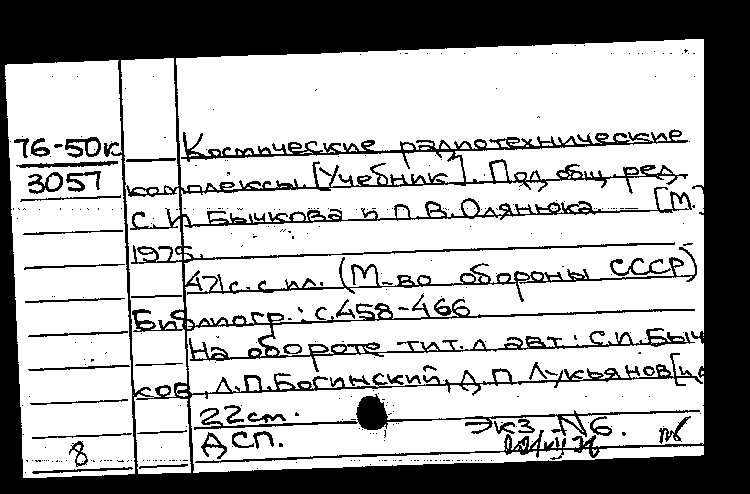 76-50к
3057
Космические радиотехнические
комплексы. [Учебник]. Под общ. ред.
С. И. Бычкова и П. В. Олянюка. [М.]
1975.
471с. с ил. (М-во обороны СССР)
Библиогр.: с.458-466.
На обороте тит. л. авт.: С.И. Быч
ков, Л.П. Богинский, Д.П. Лукьянов [и
22см.
ДСП.
Экз. N6.
8